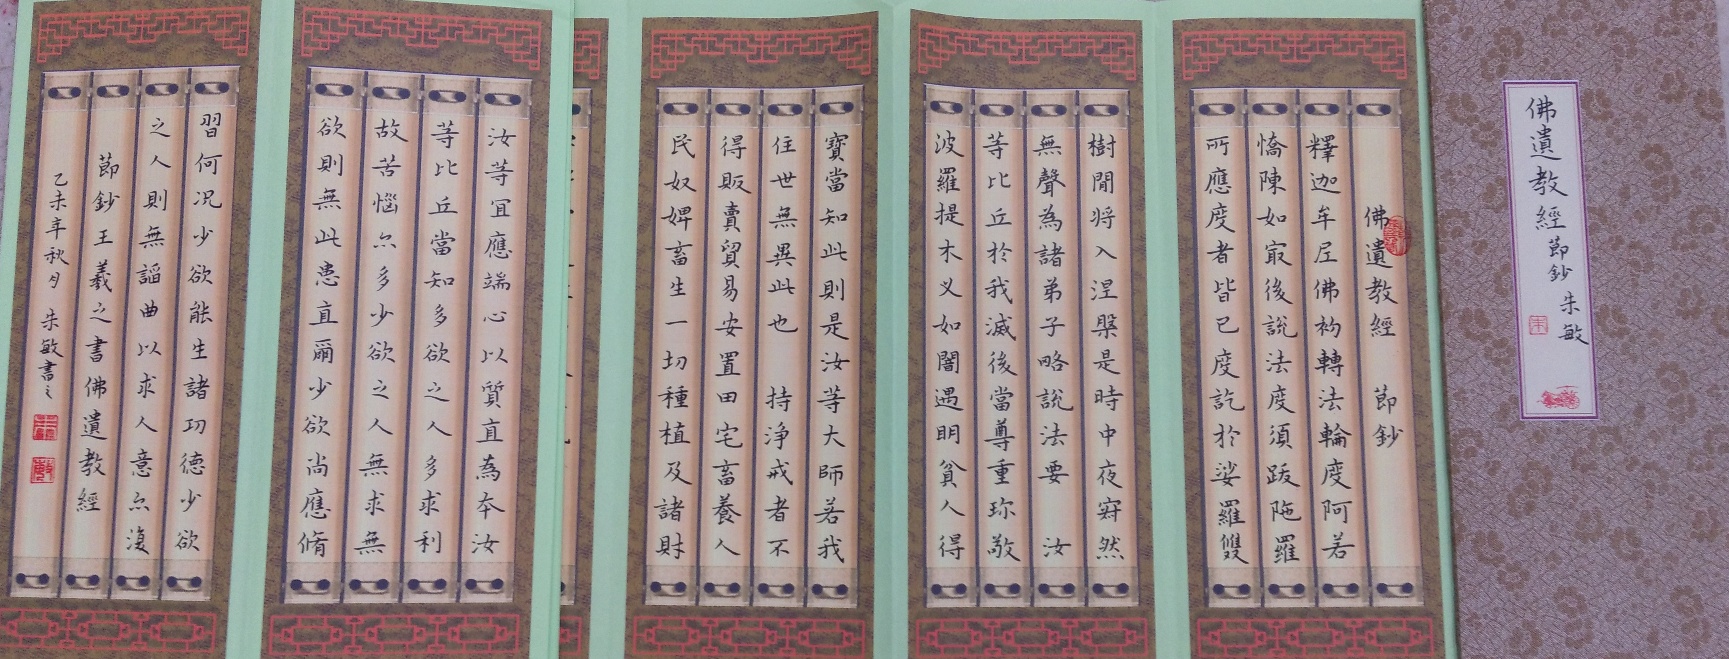 佛遺教經節鈔 朱敏
佛遺教經 節鈔
釋迦牟尼佛初轉法輪度阿若
憍陳如寂後說法度須跋陁羅
所應度者皆已度訖於娑羅雙
樹間將入涅槃是時中夜寂然
無聲為諸弟子略說法要 汝
等比丘於我滅後當尊重珎敬
波羅提木叉如闇遇明貧人得
寶當知此則是汝等大師若我
住世無異此也 持淨戒者不
得販賣貿易安置田宅畜養人
民奴婢畜生一切種植及諸財
汝等宜應端心以質直為本汝
等比丘當知多欲之人多求利
故苦惱亦多少欲之人無求無
欲則無此患直爾少欲尚應脩
習何況少欲能生諸功德少欲
之人則無諂曲以求人意亦復
節鈔王羲之書佛遺教經
乙未年秋月 朱敏書之